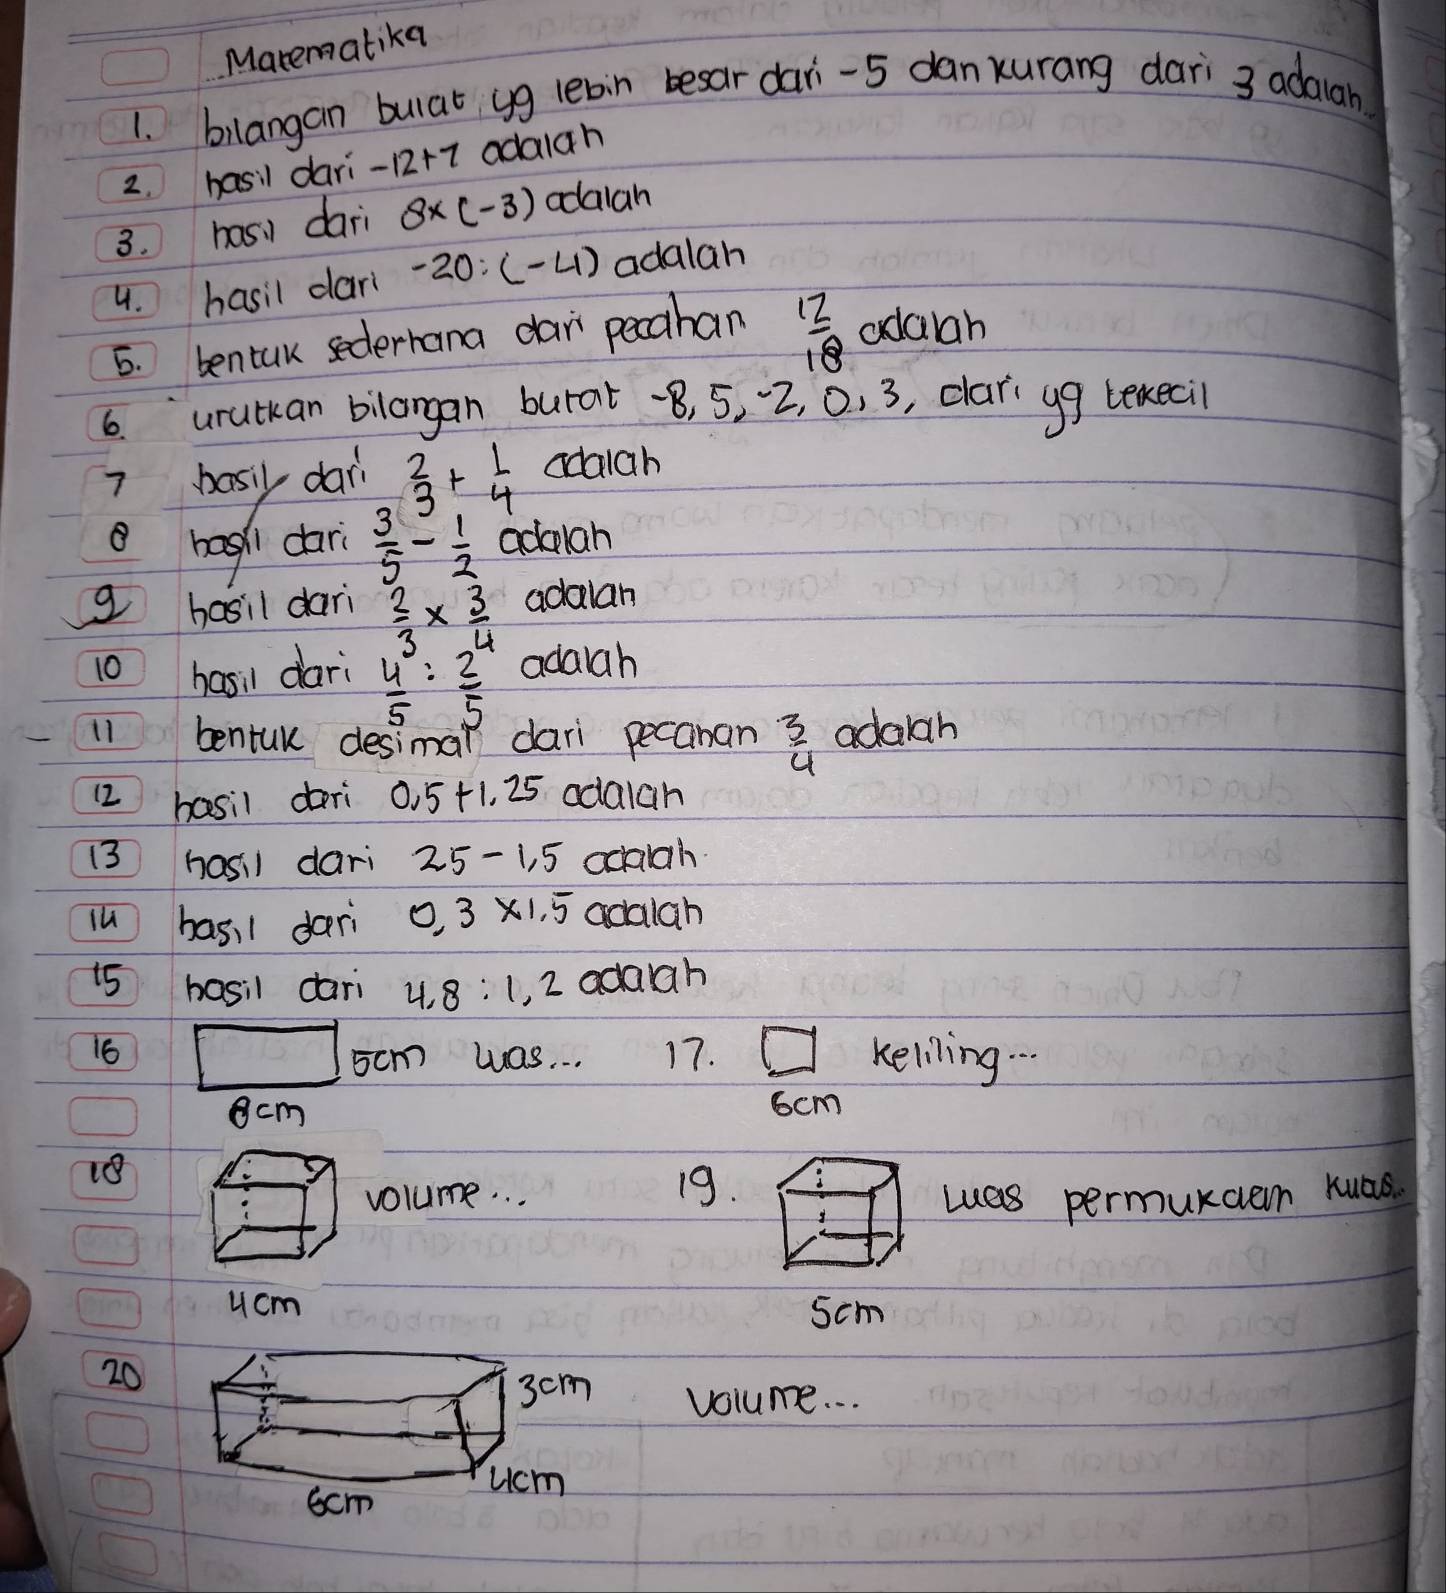 Matematika
1. bilangan bulat yg lebih besar dari -5 dan kurang dari 3 adalah..
2. hasil dari -12+7 adalah
3. hasil dari 8x(-3) adalah
4. hasil dari -20:(-4) adalah
5. bentuk sederhana dari pecahan 12/18 adalah
6. urutkan bilangan burat -8, 5, -2, 0, 3, dari yg terkecil
7 hasil dari 2/3 + 1/4 adalah
8 hasil dari 3/5 - 1/2 adalah
9 hasil dari 2/3 x 3/4 adalah
10 hasil dari 4/5 : 2/5 adalah
11 bentuk desimal dari pecahan 3/4 adalah
12 hasil dari 0,5+1,25 adalah
13 hasil dari 25-1,5 adalah
14 hasil dari 0,3 x1,5 adalah
15 hasil dari 4,8 : 1,2 adalah
16 5cm luas... 17. keliling...
8cm 6cm
18 volume... 19. luas permukaan kubus..
4cm 5cm
20 3cm volume...
4cm
6cm